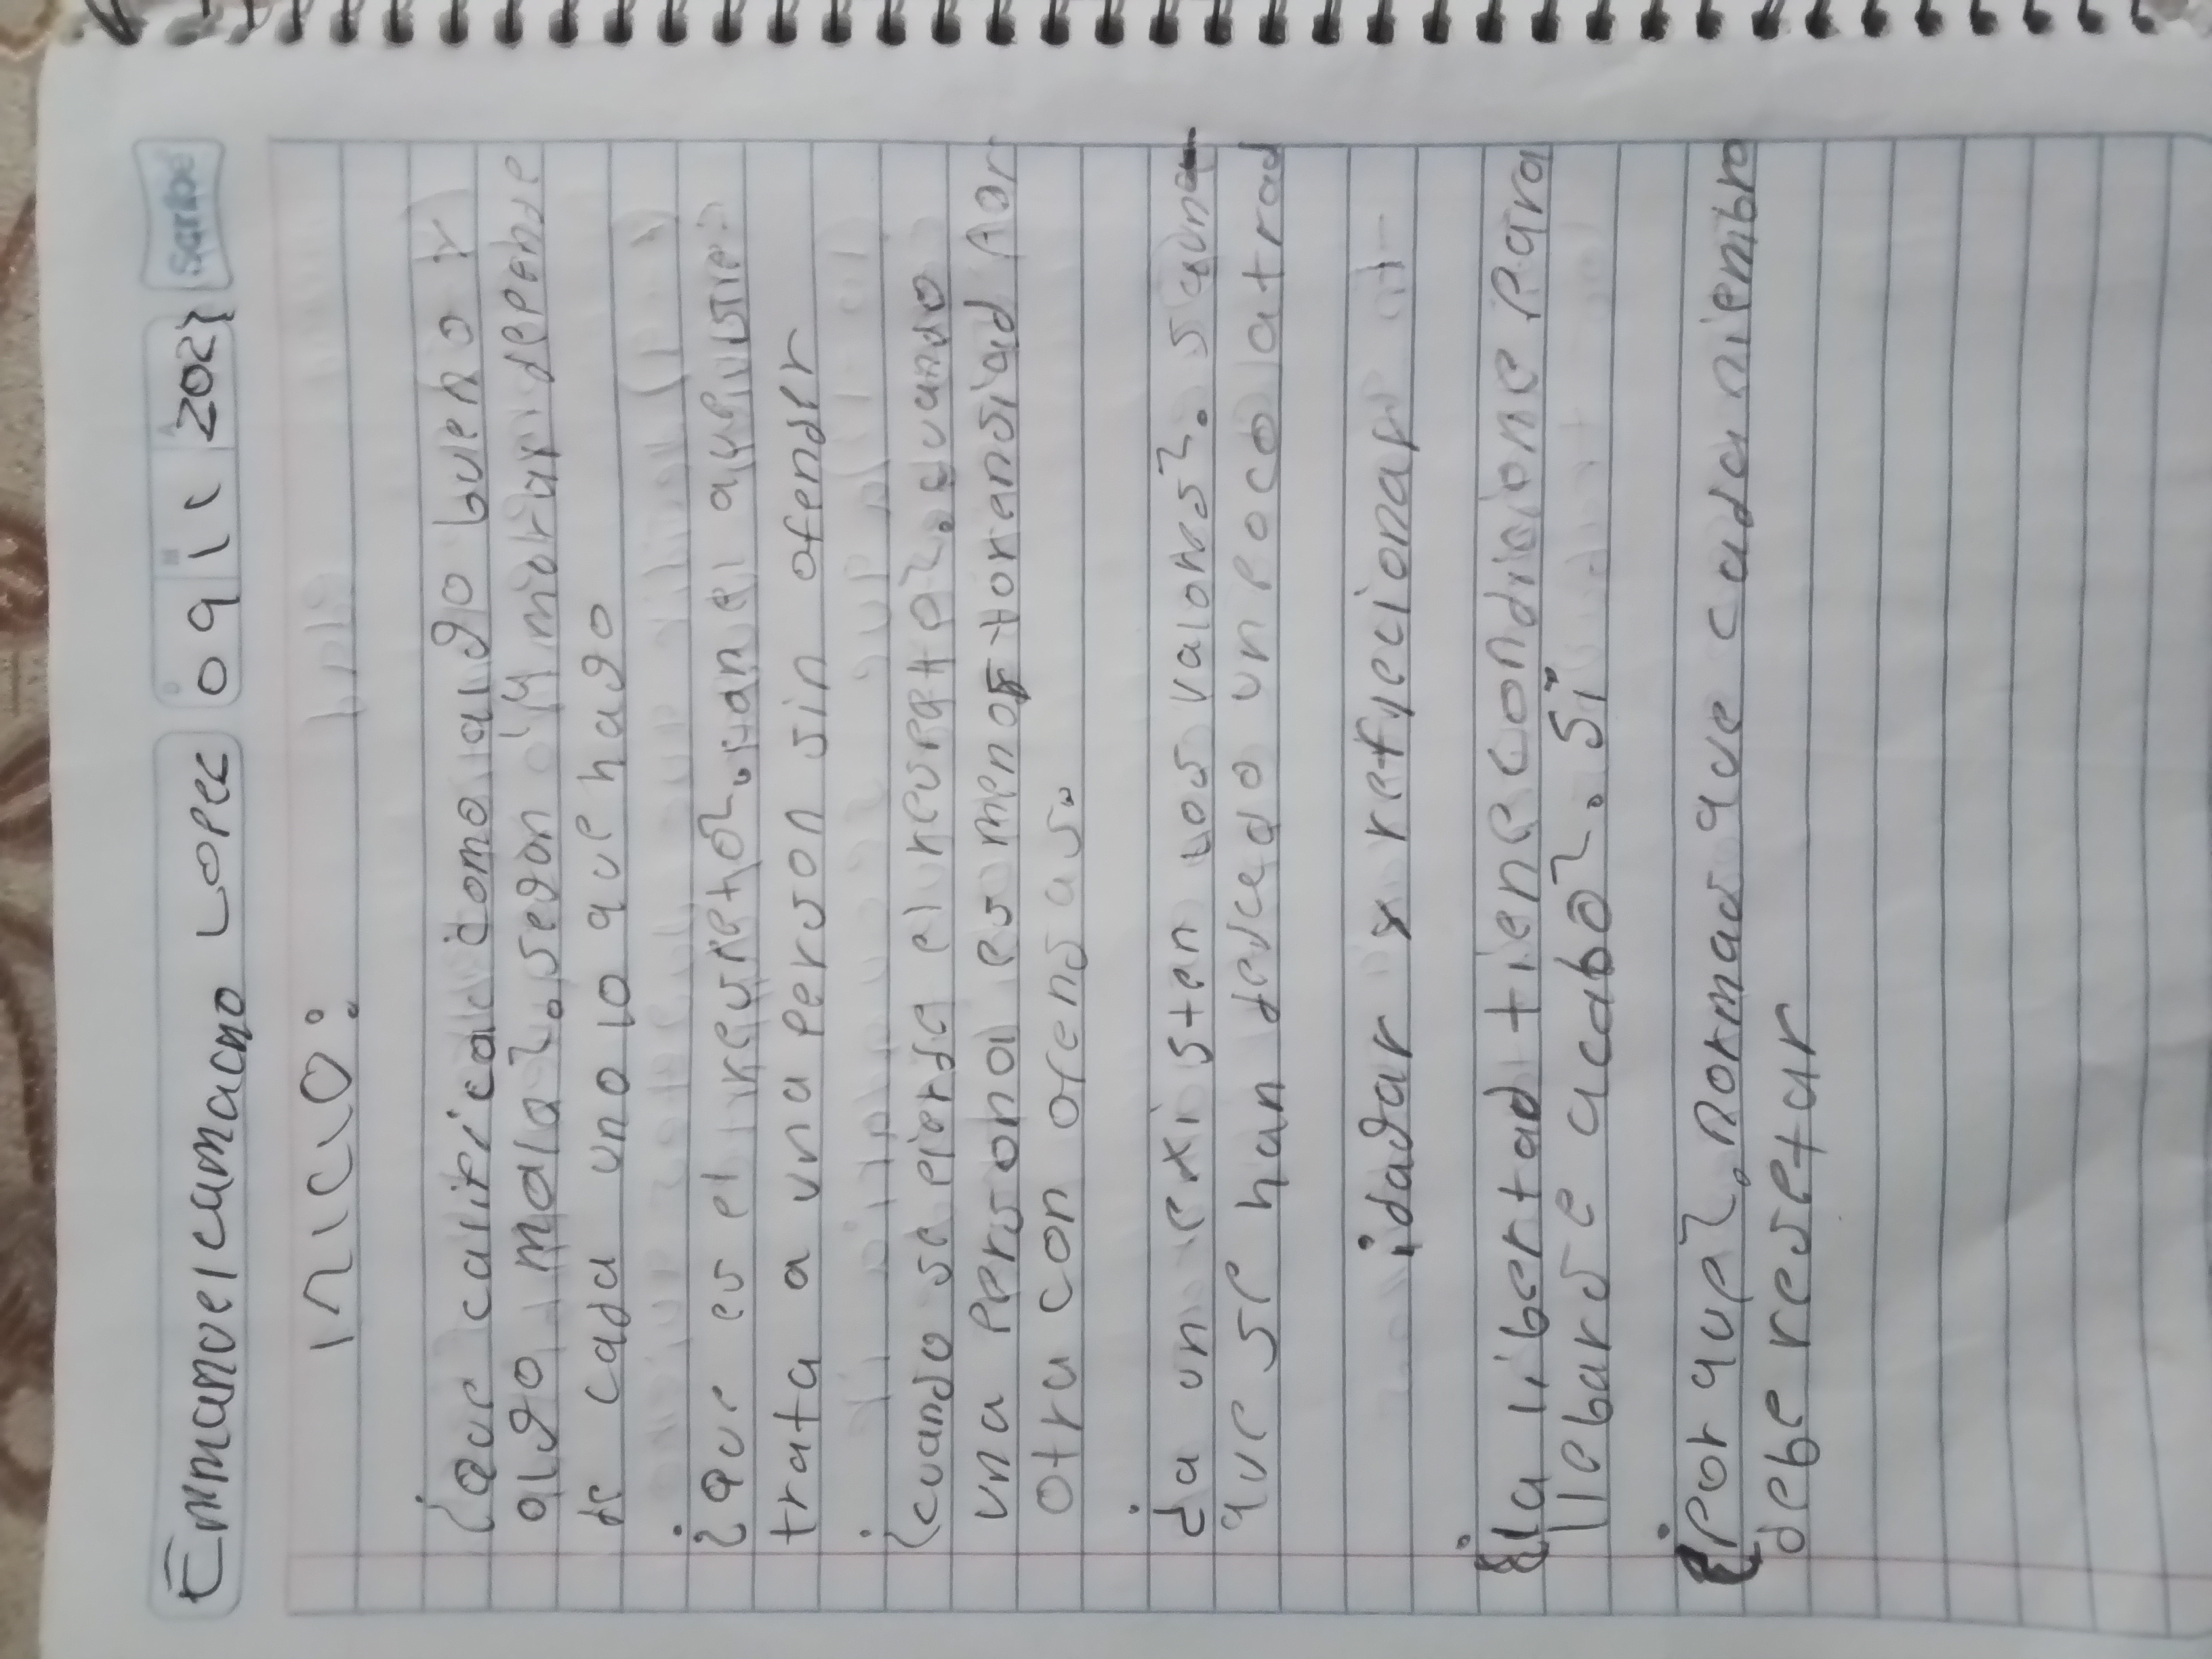 Emmanuel camacho Lopec 09 11 2021 Scribe
inicio:
¿Que califica como algo bueno y
algo mala?. segon mi morar depende
de cada uno lo que hago
¿Que es el respeto?. Han el
trata a una person sin ofender
¿cuando se pierde el respeto?. cuando
una persona es menos toransiad
otra con ofensas.
¿a un existen los valores?.
que se han devced un poco atrad
idagar y reflecionar
¿la libertad tiene condicione para
lebarse acabo?. Si
¿Por que?. Normas que cada miembro
debe resetar